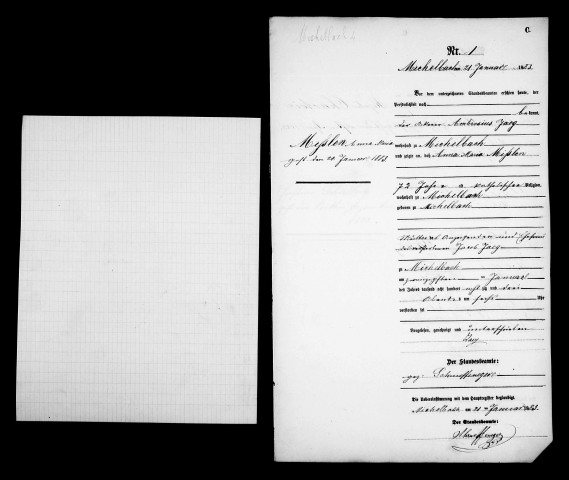 C.
Nr. 1
Michelbach am 21 Januar 1883.
Vor dem unterzeichneten Standesbeamten erschien heute, der
Persönlichkeit nach
bekannt,
der Ackerer Ambrosius Jaeg
wohnhaft zu Michelbach
und zeigte an, daß Anna Maria Mißlen
72 Jahre a katholischer Religion,
wohnhaft zu Michelbach
geboren zu Michelbach
Mutter des Anzeigenden und
Jacob Jaeg
zu Michelbach
am zwanzigsten Januar
des Jahres tausend acht hundert achtzig und drei
Abends um sechs Uhr
verstorben sei
Vorgelesen, genehmigt und unterschrieben
Jaeg
Der Standesbeamte:
gez.
Die Uebereinstimmung mit dem Hauptregister beglaubigt.
Michelbach am 21 ten Januar 1883.
Der Standesbeamte:
Mißlen Anna Maria
gest. den 20 Januar 1883